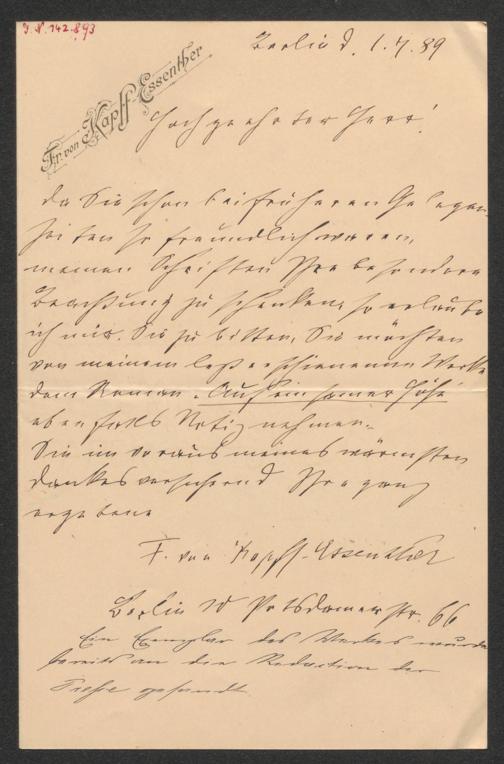 J.N. 142.893
Berlin d. 1.7.89
Fr. von Kapff-Essenther.
Hochgeehrter Herr!
Da Sie schon bei früheren Gelegen-
heiten so freundlich waren,
meinen Schriften Ihre besondere
Beachtung zu schenken, so erlaube
ich mir, Sie zu bitten, Sie möchten
von meinem letzterschienenen Werke
dem Roman „Auf einsamer Höhe"
ebenfalls Notiz nehmen.
Sie im voraus meines wärmsten
Dankes versichernd Ihre ganz
ergebene
F. von Kapff-Essenther
Berlin W Potsdamerstr. 66
Ein Exemplar des Werkes wurde
bereits an die Redaction der
gesandt.